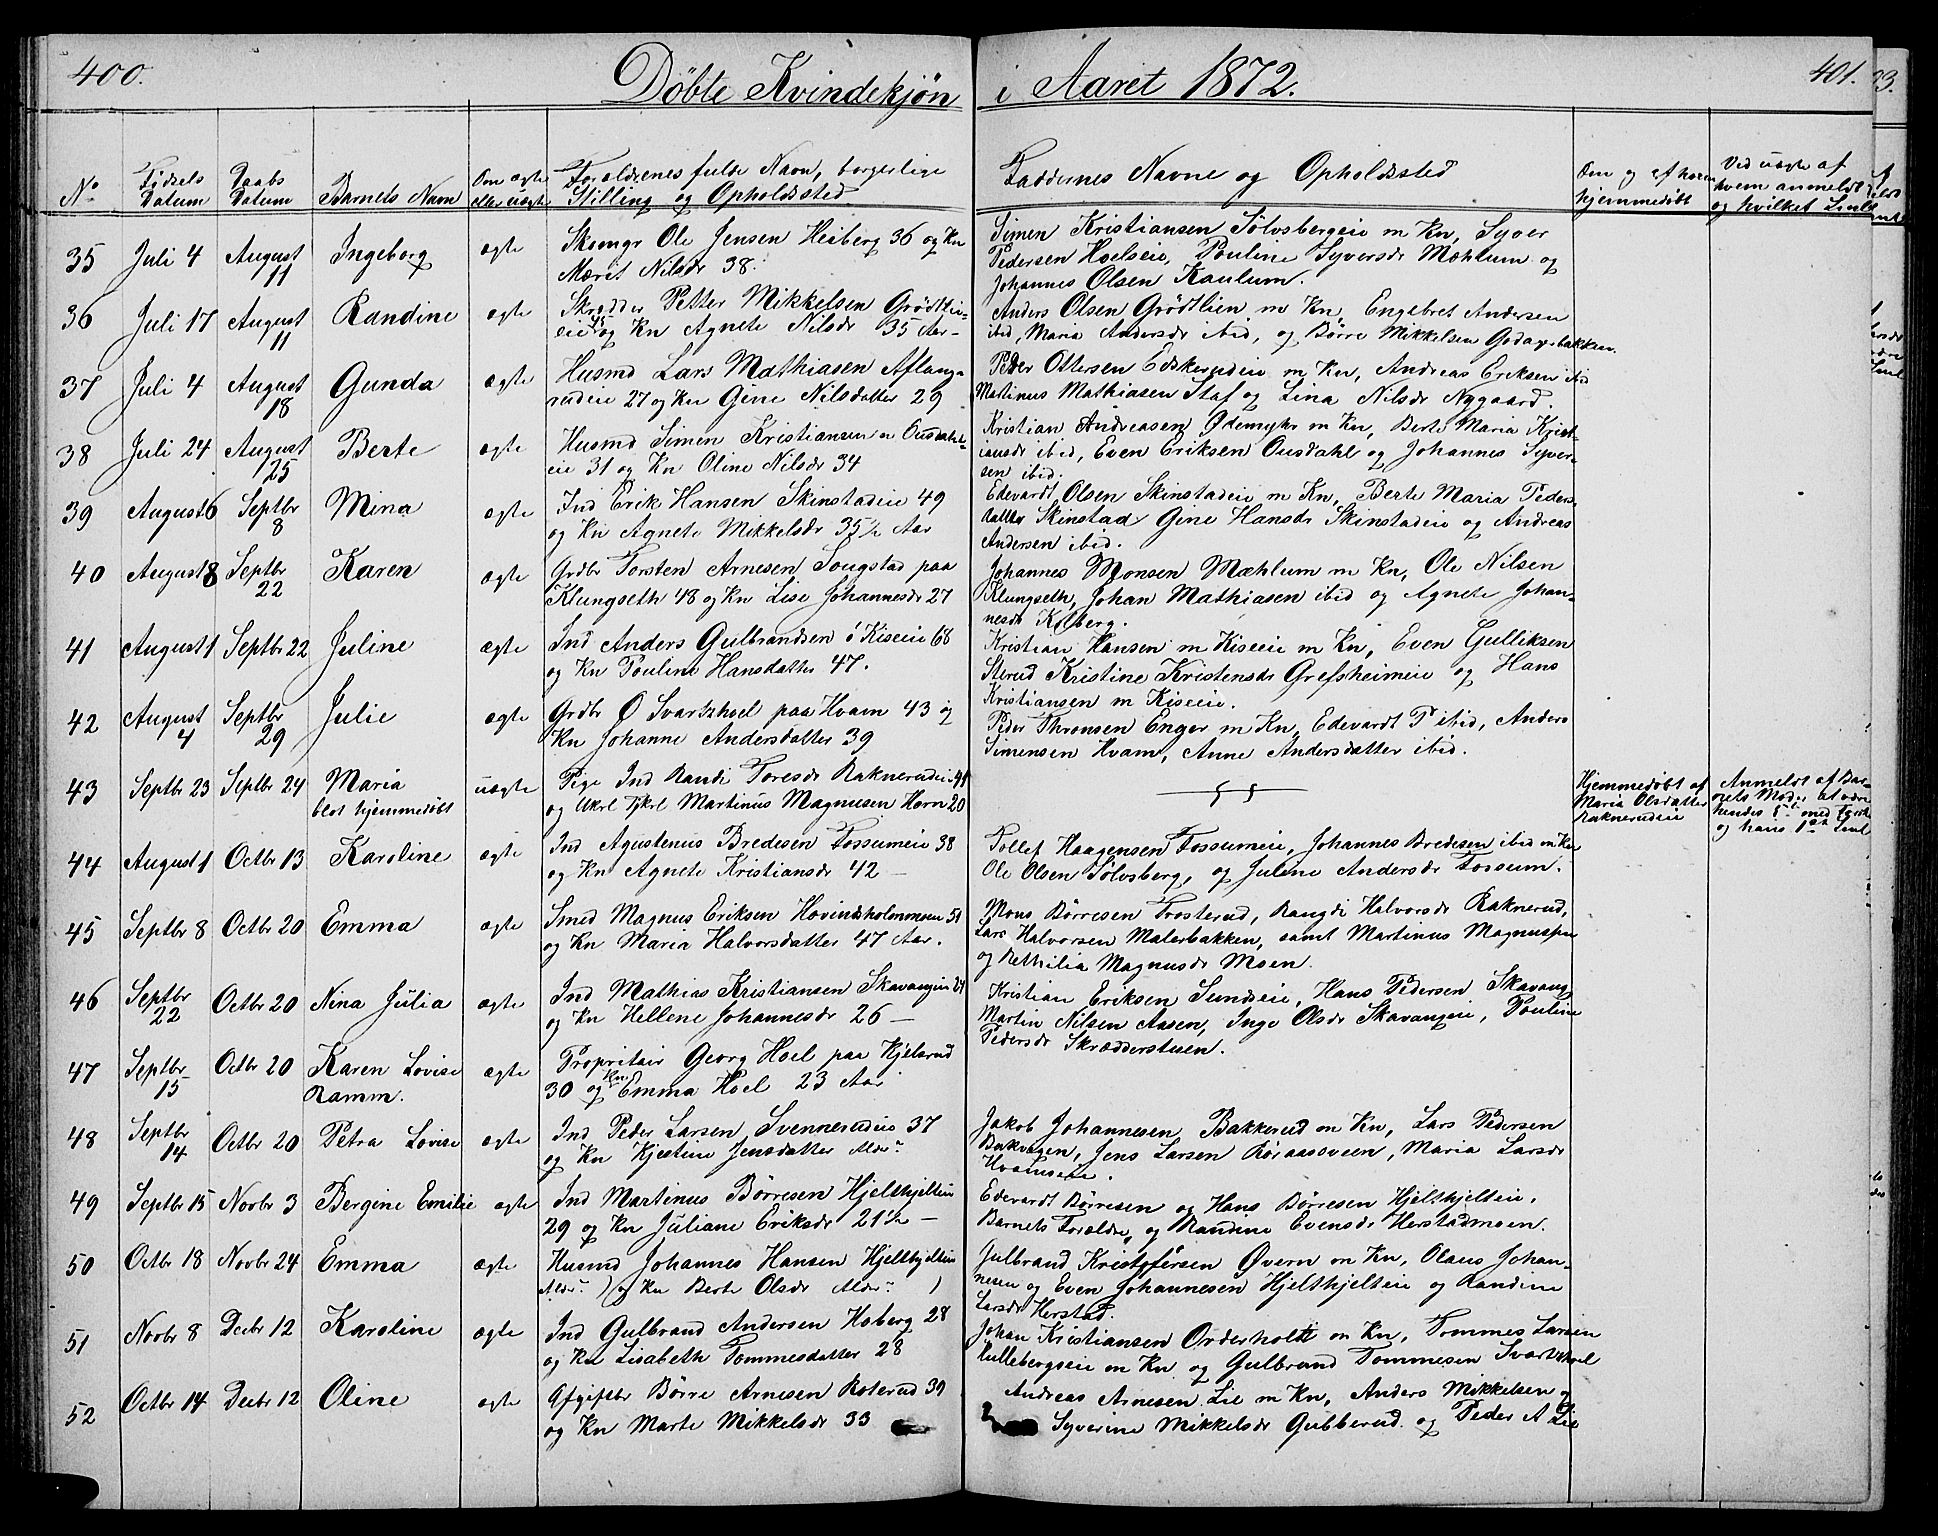 400.
Döbte Kvindekjön i Aaret 1872.
401.
No
Födsels Datum
Daabs Datum
Barnets Navn
Om ægte eller uægte
Forældrenes fulde Navn, borgerlige
Stilling og Opholdssted
Faddernes Navne og Opholdssted
Om og af hvem
hjemmedöbt
Ved uægte af
hvem anmeldt
og hvilket Leul
35 Juli 4 August 11 Ingeborg ægte
Skomgr Ole Jensen Heiberg 36 og Kn
Mærit Nilsdr 38.
Simen Kristiansen Sölvsbergeie m Kn, Syver
Pedersen Hoelseie, Pouline Syversdr Mæhlum og
Johannes Olsen Kaulum.
36 Juli 17 August 11 Randine ægte
Skrædder Petter Mikkelsen Grödtli-
eie og Kn Agnete Nilsdr 35 Aar-
Anders Olsen Grödtlien m Kn, Engebret Andersen
ibid, Maria Andersdr ibid, og Börre Mikkelsen Godagsbakken.
37 Juli 4 August 18 Gunda ægte
Husmd Lars Mathiasen Aflang-
rudeie 27 og Kn Gine Nilsdatter 29
Peder Ottersen Edskerudeie m Kn, Andreas Eriksen ibid
Martinus Mathiasen Staf og Lina Nilsdr Nygaard.
38 Juli 24 August 25 Berte ægte
Husmd Simen Kristiansen Ousdahl-
eie 31 og Kn Oline Nilsdr 34
Kristian Andreasen Ödemyhr m Kn, Berte Maria Krist-
iansdr ibid, Even Eriksen Ousdahl og Johannes Syver-
sen ibid.
39 August 6 Septbr 8 Mina ægte
Ind Erik Hansen Skinstadeie 49
og Kn Agnete Mikkelsdr 35 1/2 Aar
Edevardt Olsen Skinstadeie m Kn, Berte Maria Peders-
datter Skinstad Gine Hansdr Skinstadeie og Andreas
Andersen ibid.
40 August 8 Septbr 22 Karen ægte
Grdbr Torsten Arnesen Sougstad paa
Klungseth 48 og Kn Lise Johannesdr 27
Johannes Monsen Mæhlum m Kn, Ole Nilsen
Klungseth, Johan Mathiasen ibid og Agnete Johan-
nesdr Kolberg.
41 August 1 Septbr 22 Juline ægte
Ind Anders Gulbrandsen ö Kiseie 68
og Kn Pouline Hansdatter 47.
Kristian Hansen m Kiseie m Kn, Even Gulliksen
Sterud Kristine Kristensdr Grefsheimeie og Hans
Kristiansen m Kiseie.
42 August 4 Septbr 29 Julie ægte
Grdbr O Svartshoel paa Hvam 43 og
Kn Johanne Andersdatter 39
Peder Thronsen Enger m Kn, Edevardt P ibid, Anders
Simensen Hvam, Anne Andersdatter ibid.
43 Septbr 23 Septbr 24 Maria uægte
blot hjemmedöbt
Pige Ind Randi Toresdr Raknerudeie 44
og Ukrl Tjkrl Martinus Magnusen Horn 20
Hjemmedöbt af
Maria Olsdatter
Raknerudeie
Anmeldt af Bar-
nets Moder at være
hendes 5te med
og hans 1ste Leul
44 August 1 Octbr 13 Karoline ægte
Ind Agustenus Bredesen Fossumeie 38
og Kn Agnete Kristiansdr 42 —
Tollef Haagensen Fossumeie, Johannes Bredesen ibid m Kn
Ole Olsen Sölvsberg, og Juline Andersdr Fossum.
45 Septbr 8 Octbr 20 Emma ægte
Smed Magnus Eriksen Hovindsholmmoen 51
og Kn Maria Halvorsdatter 47 Aar.
Mons Börresen Frosterud, Rangdi Halvorsdr Raknerud,
Lars Halvorsen Malerbakken, samt Martinus Magnussen
og Bethilia Magnusdr Moen.
46 Septbr 22 Octbr 20 Nina Julia ægte
Ind Mathias Kristiansen Skavangeie 24
og Kn Hellene Johannesdr 26 —
Kristian Eriksen Sundseie, Hans Pedersen Skavang
Martin Nilsen Aasen, Inge Olsdr Skavangeie, Pouline
Pedersdr Skrædderstuen.
47 Septbr 15 Octbr 20 Karen Lovise ægte
Ramm.
Propritair Georg Hoel paa Kjelsrud
30 og Kn Emma Hoel 23 Aar
48 Septbr 14 Octbr 20 Petra Lovise ægte
Ind Peder Larsen Svennerudeie 37
og Kn Kjestine Jensdatter Alder
Jakob Johannesen Bakkerud m Kn, Lars Pedersen
Bakvegen, Jens Larsen Röraassveen, Maria Larsdr
49 Septbr 15 Novbr 3 Bergine Emilie ægte
Ind Martinus Börresen Hjelthjelteie
29 og Kn Juliane Eriksdr 21 1/2 —
Edevardt Börresen og Hans Börresen Hjelthjelteie,
Barnets Forældre, og Randine Evensdr Herstadmoen.
50 Octbr 18 Novbr 24 Emma ægte
Husmd Johannes Hansen Hjelthjelteie
Alder ) og Kn Berte Olsdr Alder )
Gulbrand Kristofersen Övern m Kn, Olaus Johan-
nesen og Even Johannesen Hjelthjelteie og Randine
Larsdr Herstad.
51 Novbr 8 Decbr 12 Karoline ægte
Ind Gulbrand Andersen Hoberg 28
og Kn Lisabeth Tommesdatter 28
Johan Kristiansen Orderholdt m Kn, Tommes Larsen
Kullebergseie m Kn og Gulbrand Tommesen Svartshoel
52 Octbr 14 Decbr 12 Oline ægte
Afgiftbr Börre Arnesen Roterud 39
og Kn Marte Mikkelsdr 33
Andreas Arnesen Lie m Kn, Anders Mikkelsen og
Syverine Mikkelsdr Gubberud og Peder A Lie